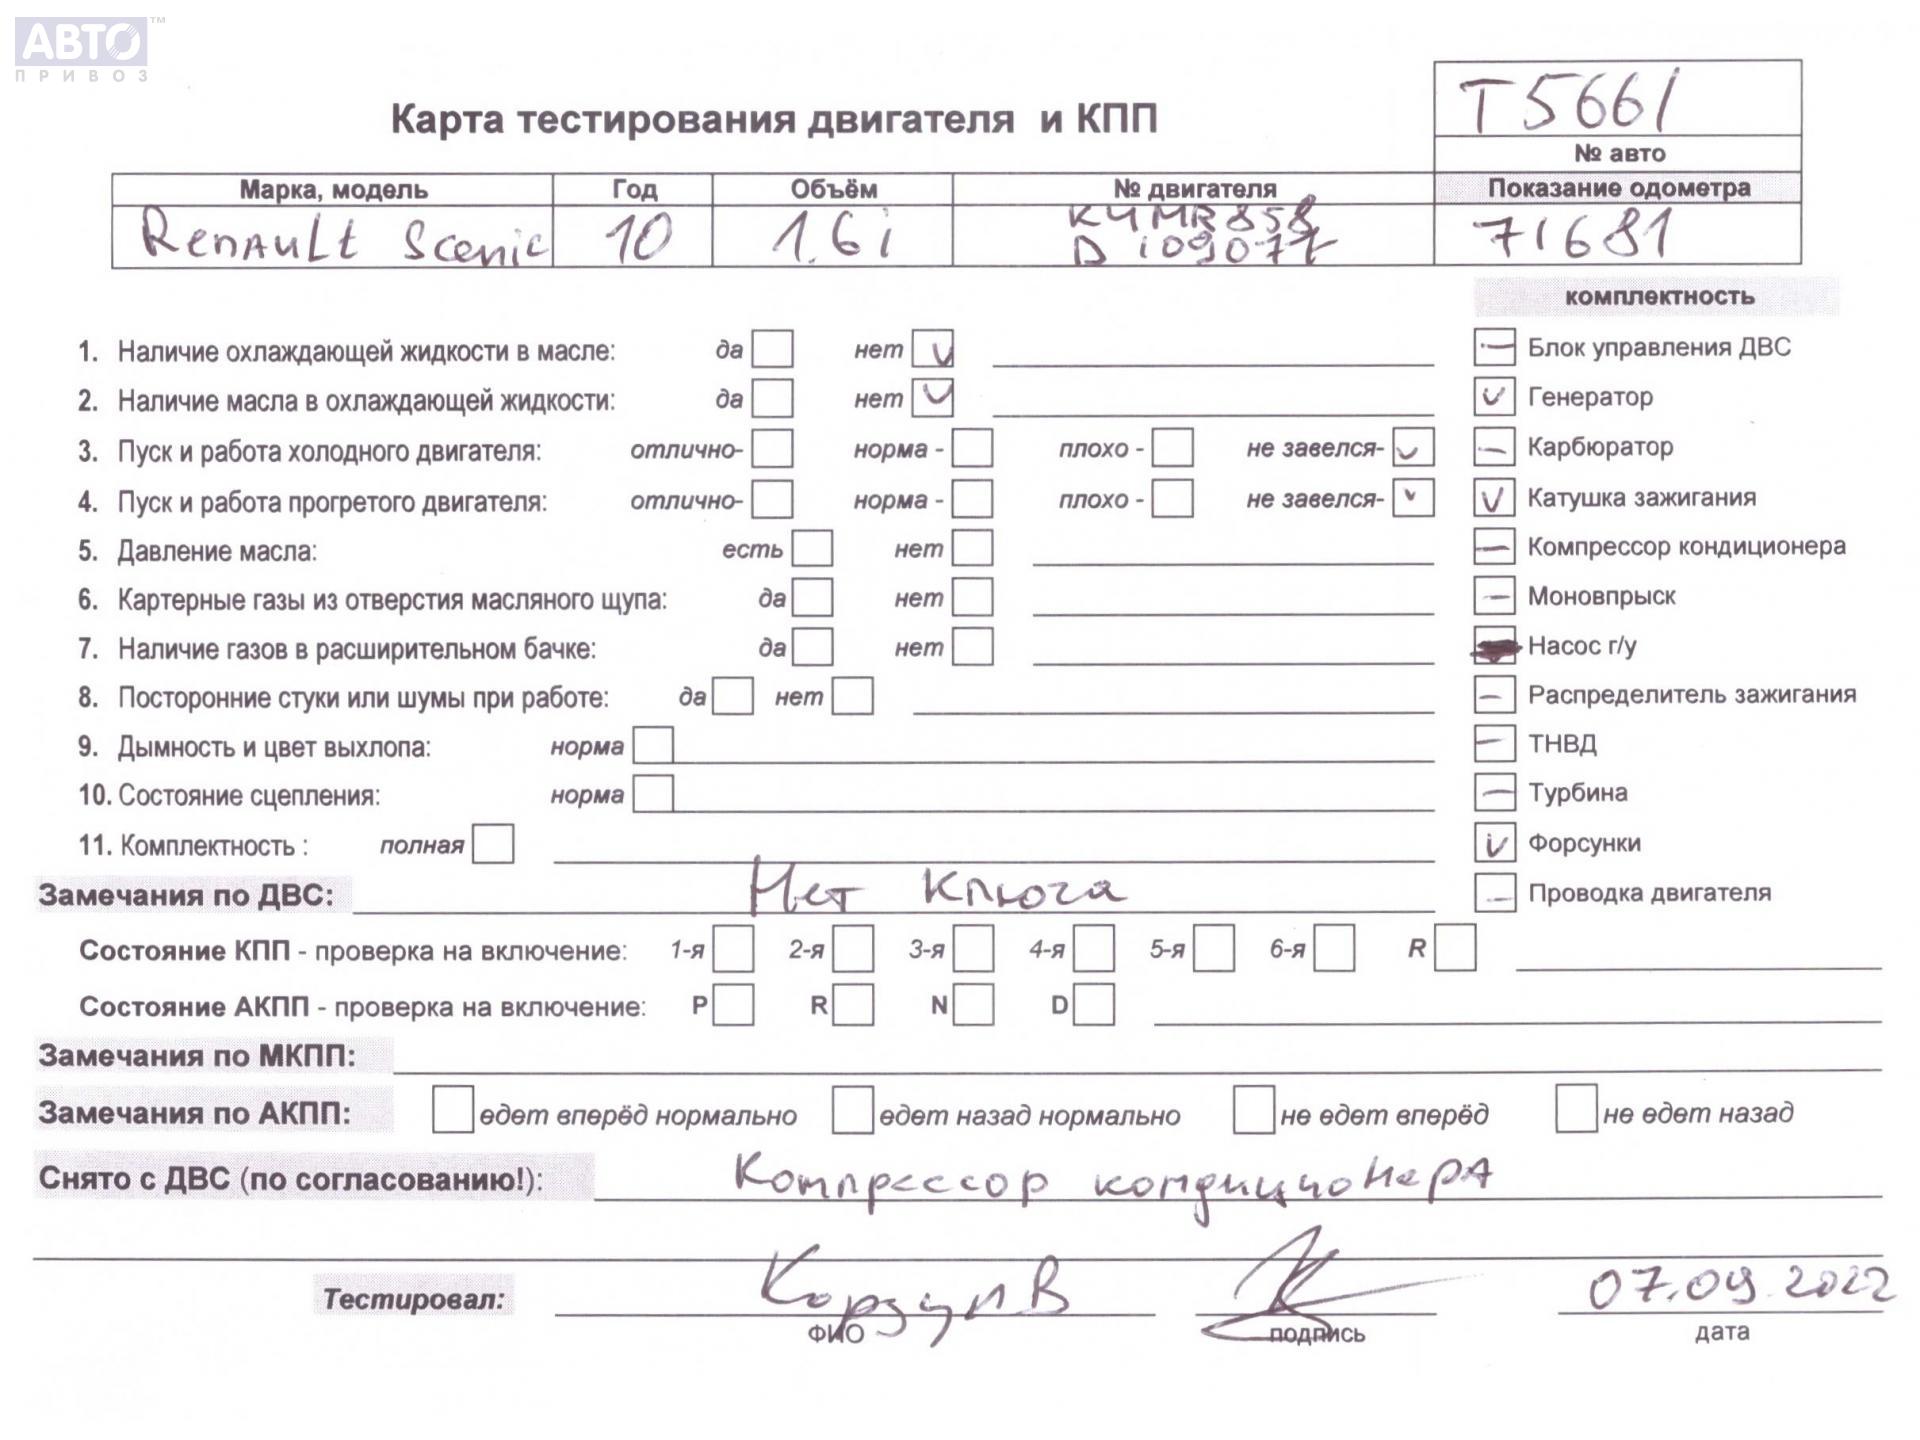 АВТО™
ПРИВОЗ
Т5661
Карта тестирования двигателя и КПП
№ авто
Марка, модель Год Объём № двигателя Показание одометра
Renault Scenic 10 1.6i K4MR858 D109077 71681
комплектность
1. Наличие охлаждающей жидкости в масле: да нет Блок управления ДВС
2. Наличие масла в охлаждающей жидкости: да нет Генератор
3. Пуск и работа холодного двигателя: отлично- норма - плохо - не завелся- Карбюратор
4. Пуск и работа прогретого двигателя: отлично- норма - плохо - не завелся- Катушка зажигания
5. Давление масла: есть нет Компрессор кондиционера
6. Картерные газы из отверстия масляного щупа: да нет Моновпрыск
7. Наличие газов в расширительном бачке: да нет Насос г/у
8. Посторонние стуки или шумы при работе: да нет Распределитель зажигания
9. Дымность и цвет выхлопа: норма ТНВД
10. Состояние сцепления: норма Турбина
11. Комплектность : полная Форсунки
Замечания по ДВС: Нет ключа Проводка двигателя
Состояние КПП - проверка на включение: 1-я 2-я 3-я 4-я 5-я 6-я R
Состояние АКПП - проверка на включение: P R N D
Замечания по МКПП:
Замечания по АКПП: едет вперёд нормально едет назад нормально не едет вперёд не едет назад
Снято с ДВС (по согласованию!): Компрессор кондиционера
Тестировал: 07.09.2022
ФИО подпись дата